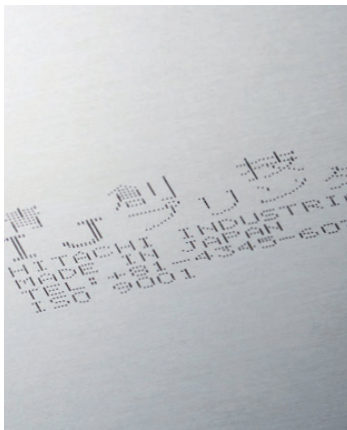 創 技
IJプリンタ
HITACHI INDUSTRI
MADE IN JAPAN
TEL: +81-4345-607
ISO 9001